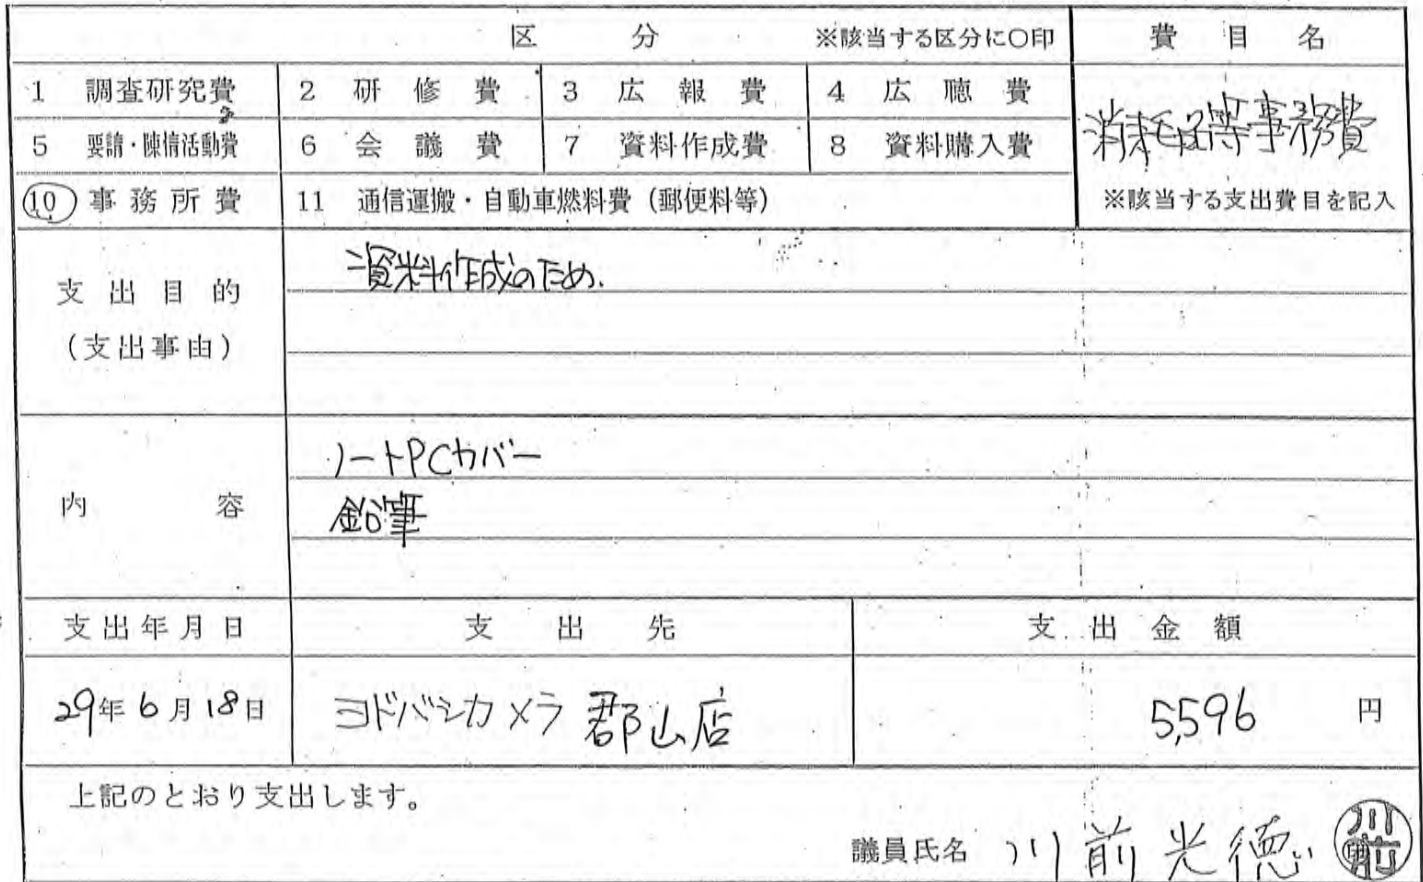 区 分 ※該当する区分に○印 費目名
1 調査研究費 2 研修費 3 広報費 4 広聴費
消耗品等事務費
5 要請・陳情活動費 6 会議費 7 資料作成費 8 資料購入費
⑩ 事務所費 11 通信運搬・自動車燃料費（郵便料等） ※該当する支出費目を記入
支出目的
（支出事由）
資料作成のため.
内容
ノートPCカバー
鉛筆
支出年月日 支出先 支出金額
29年6月18日 ヨドバシカメラ 郡山店 5,596 円
上記のとおり支出します。
議員氏名 川前光徳 川前